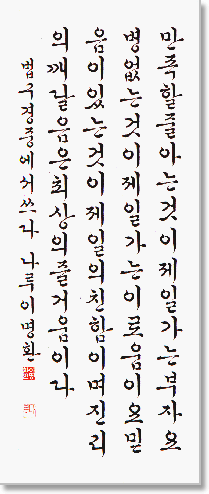 만족할줄아는것이제일가는부자요
병없는것이제일가는이로움이요믿
음이있는것이제일의친함이며진리
의깨달음은최상의즐거움이다
법구경중에서쓰다 나루이명환